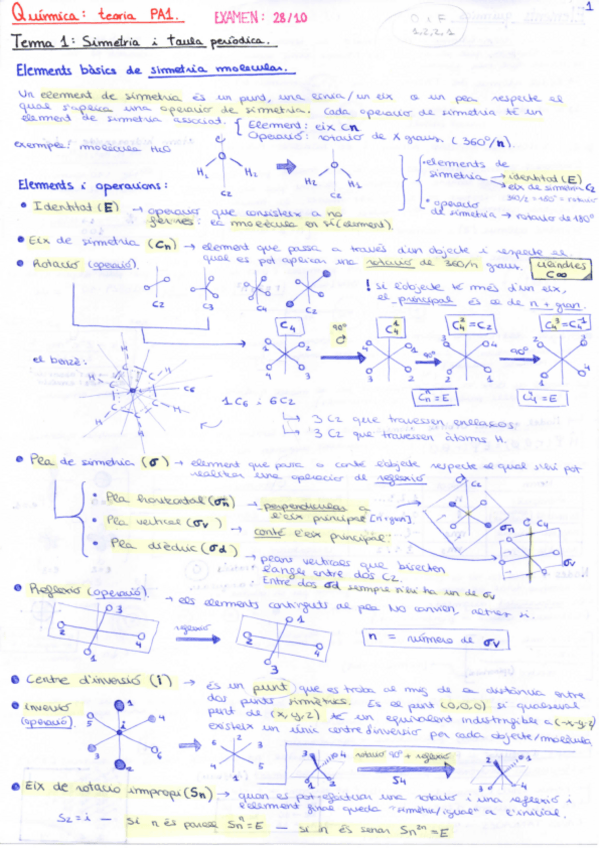 Química: teoria PA1. EXAMEN: 28/10
1
Tema 1: Simetria i taula periòdica.
Elements bàsics de simetria molecular.
Un element de simetria és un punt, una línia/un eix o un pla respecte el
qual s'aplica una operació de simetria. Cada operació de simetria té un
element de simetria associat. { Element: eix Cn
Operació: rotació de X graus. (360°/n).
exemple: molècula H2O
H1 H2 C2
H2 H1 C2
• elements de simetria → identitat (E)
→ eix de simetria C2
360/2 = 180° = rotació
• operació de simetria → rotació de 180°
Elements i operacions:
• Identitat (E) → operació que consisteix a no
fer res: la molècula en si (element).
• Eix de simetria (Cn) → element que passa a través d'un objecte i respecte el
qual es pot aplicar una rotació de 360/n graus. cilindres C∞
• Rotació (operació).
C2 C3 C4 C2
! si l'objecte té més d'un eix,
el principal és el de n + gran.
C4 90° C4^1 90° C4^2 = C2 90° C4^3 = C4^-1
Cn^n = E C4^4 = E
el benzè:
C6
1 C6 i 6 C2
↳ 3 C2 que travessen enllaços
↳ 3 C2 que travessen àtoms H.
• Pla de simetria (σ) → element que passa o conté l'objecte respecte el qual s'hi pot
realitzar una operació de reflexió
• Pla horitzontal (σh) → perpendicular a
l'eix principal [n+gran]
• Pla vertical (σv) → conté l'eix principal.
• Pla dièdric (σd) → plans verticals que bisecten
l'angle entre dos C2.
Entre dos σd sempre n'hi ha un de σv
σh C4 σv
• Reflexió (operació) → els elements continguts al pla NO canvien, altres sí.
reflexió
n = número de σv
• Centre d'inversió (i) → és un punt que es troba al mig de la distància entre
dos punts simètrics. És el punt (0,0,0) si qualsevol
punt de (x,y,z) té un equivalent indistingible a (-x,-y,-z)
existeix un únic centre d'inversió per cada objecte/molècula
• inversió (operació).
rotació 90° + reflexió
S4
• Eix de rotació impropi (Sn) → quan es pot efectuar una rotació i una reflexió i
l'element final queda "simètric/igual" a l'inicial.
S2 = i — si n és parell Sn^n = E — si n és senar Sn^2n = E